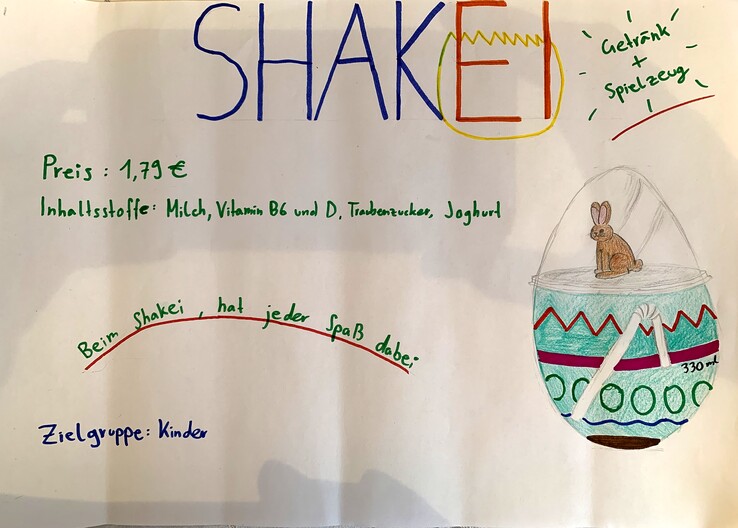 SHAKEI
Getränk
+
Spielzeug
Preis : 1,79 €
Inhaltsstoffe: Milch, Vitamin B6 und D, Traubenzucker, Joghurt
Beim Shakei, hat jeder Spaß dabei
330 ml
Zielgruppe: Kinder